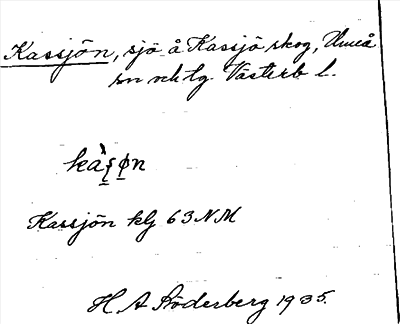 Kassjön, sjö å Kassjö skog, Umeå
sn och tg. Västerb l.
kàʂøn
Kassjön klj 63 NM
H. A Söderberg 1935.